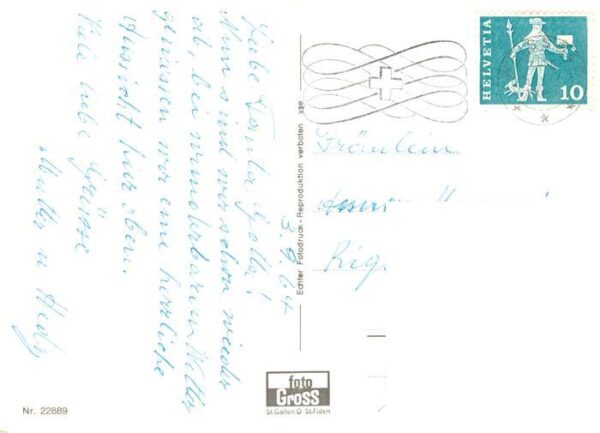 3.9.64
Liebe Tante
Nun sind wir schon wieder
ab, bei wunderbarem Wetter
geniessen wir eine herrliche
Aussicht hier oben.
Viele liebe Grüsse
Mutter u Hedy
HELVETIA
10
Fräulein
Echter Fotodruck - Reproduktion verboten
foto
GROSS
St.Gallen O St.Fiden
Nr. 22889